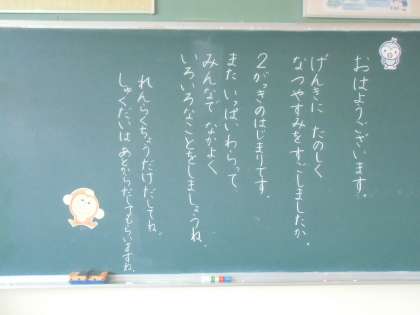 おはようございます。
げんきに たのしく
なつやすみをすごしましたか。
2がっきのはじまりです。
また いっぱいわらって
みんなで なかよく
いろいろなことをしましょうね。
れんらくちょうだけだしてね。
しゅくだいは あとからだしてもらいますね。